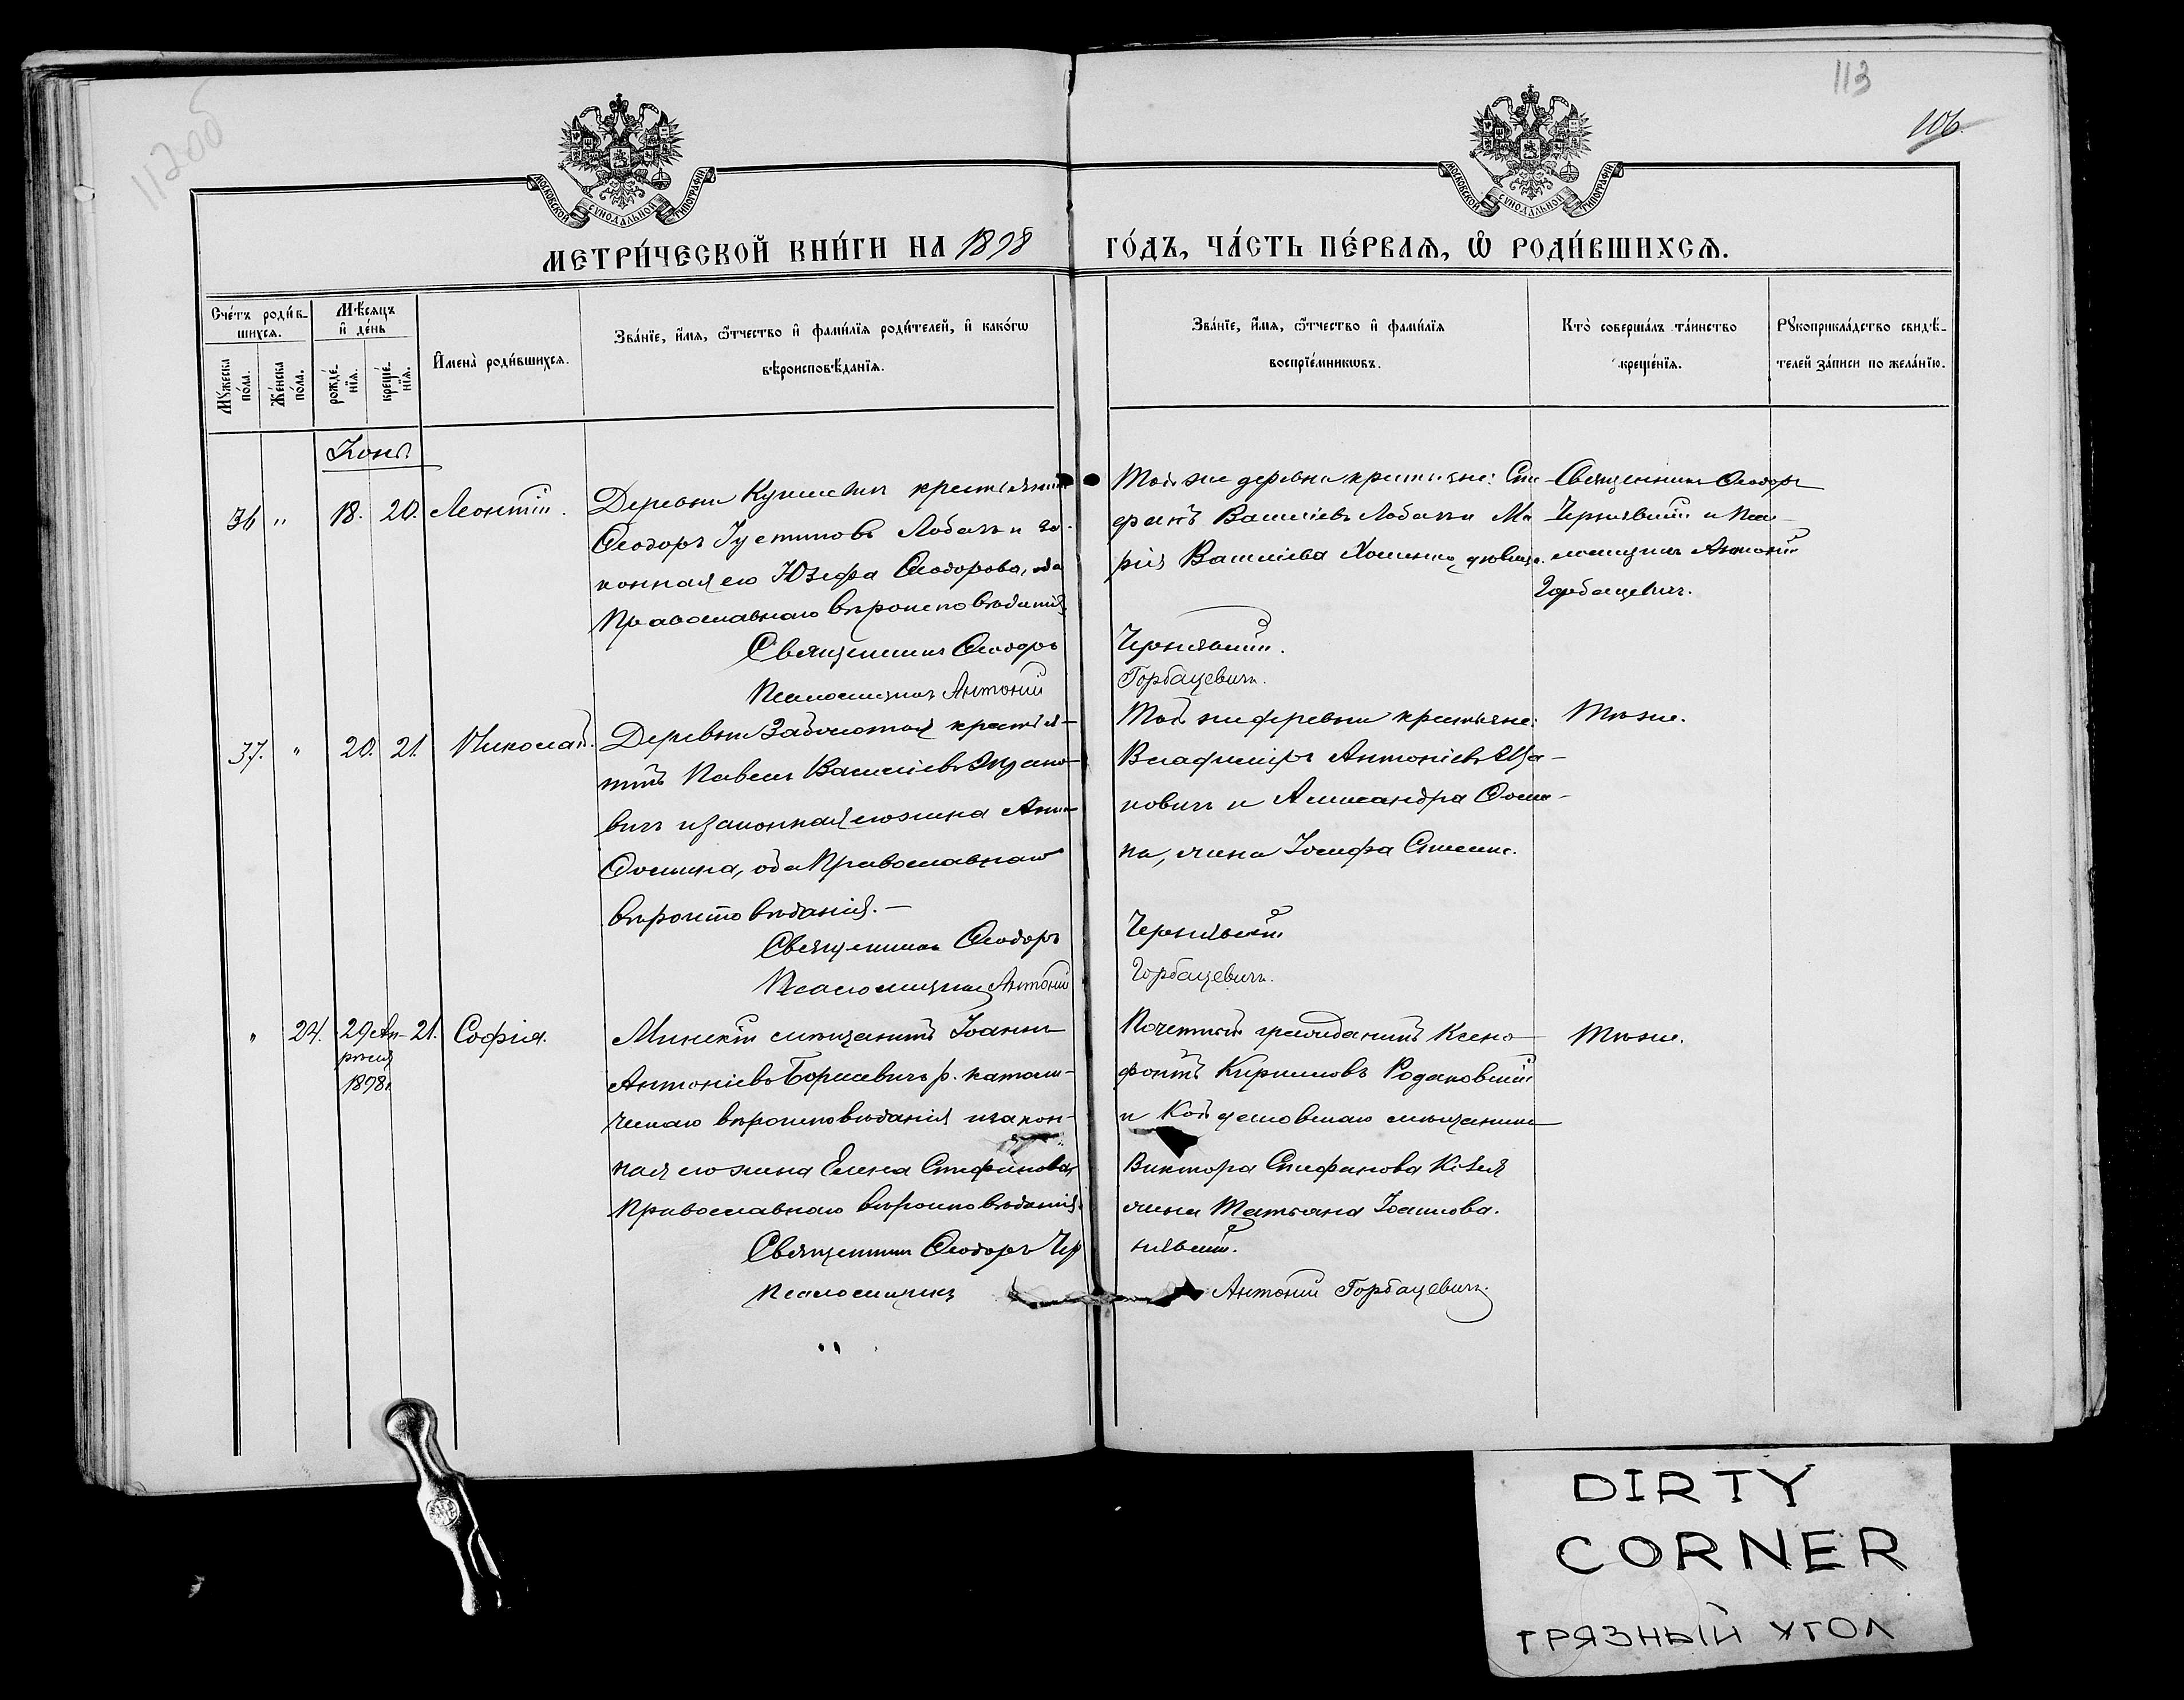 112об
113
106.
МОСКОВСКОЙ СѴНОДАЛЬНОЙ ТИПОГРАФІИ
МОСКОВСКОЙ СѴНОДАЛЬНОЙ ТИПОГРАФІИ
МЕТРИ́ЧЕСКОЙ КНИ́ГИ НА 1898
ГО́ДЪ, ЧА́СТЬ ПЕ́РВАѦ, Ѽ РОДИ́ВШИХСѦ.
Сче́тъ роди́в-
шихсѧ.
Мꙋ́жеска
по́ла.
Же́нска
по́ла.
Мѣ́сѧцъ
и҆ де́нь
рожде́-
нїѧ.
креще́-
нїѧ.
И҆мена̀ роди́вшихсѧ.
Зва́нїе, и҆́мѧ, ѻ҆́тчество и҆ фами́лїѧ роди́телей, и҆ како́гѡ
вѣроисповѣ́данїѧ.
Зва́нїе, и҆́мѧ, ѻ҆́тчество и҆ фами́лїѧ
воспрїе́мникѡвъ.
Кто̀ соверша́лъ та́инство
креще́нїѧ.
Рꙋкоприкла́дство свидѣ́-
телей за́писи по жела́нїю.
Іюнь
36 " 18. 20. Леонтій.
Деревни крестьянинъ
Ѳеодоръ Іустиновъ Лобачъ и за-
конная его Юзефа Ѳеодорова, оба
Православнаго вѣроисповѣданія
Священникъ Ѳеодоръ
Псаломщикъ Антоній
Той же деревни крестьяне: Сте-
фанъ Василіевъ Лобачъ и Ма-
рія Василіева Хоменко, дѣвица.
Чернявскій.
Горбацевичъ.
Священникъ Ѳеодоръ
Чернявскій и Пса-
ломщикъ Антоній
Горбацевичъ.
37. " 20. 21. Николай.
Деревни Заболотья крестья-
нинъ Павелъ Василіевъ
вичъ и законная его жена Анна
Ѳомина, оба Православнаго
вѣроисповѣданія.—
Священникъ Ѳеодоръ
Псаломщикъ Антоній
Той же деревни крестьяне:
Владиміръ Антоніевъ
новичъ и Александра Ѳоми-
на, жена Іосифа
Чернявскій
Горбацевичъ.
Тѣ же.
" 24. 29 Ап- 21. София.
рѣля
1898г.
Минскій мѣщанинъ Іоаннъ
Антоніевъ Борисевичъ р. католи-
ческаго вѣроисповѣданія и закон-
ная его жена Елена Стефанова,
Православнаго вѣроисповѣданія.
Священникъ Ѳеодоръ Чер
Псаломщикъ
Почетный гражданинъ Ксено-
фонтъ Кирилловъ Родаковскій
и мѣщанина
Виктора Стефанова
жена Татьяна Іоаннова.
нявскій.
Антоній Горбацевичъ.
Тѣ же.
DIRTY
CORNER
ГРЯЗНЫЙ УГОЛ